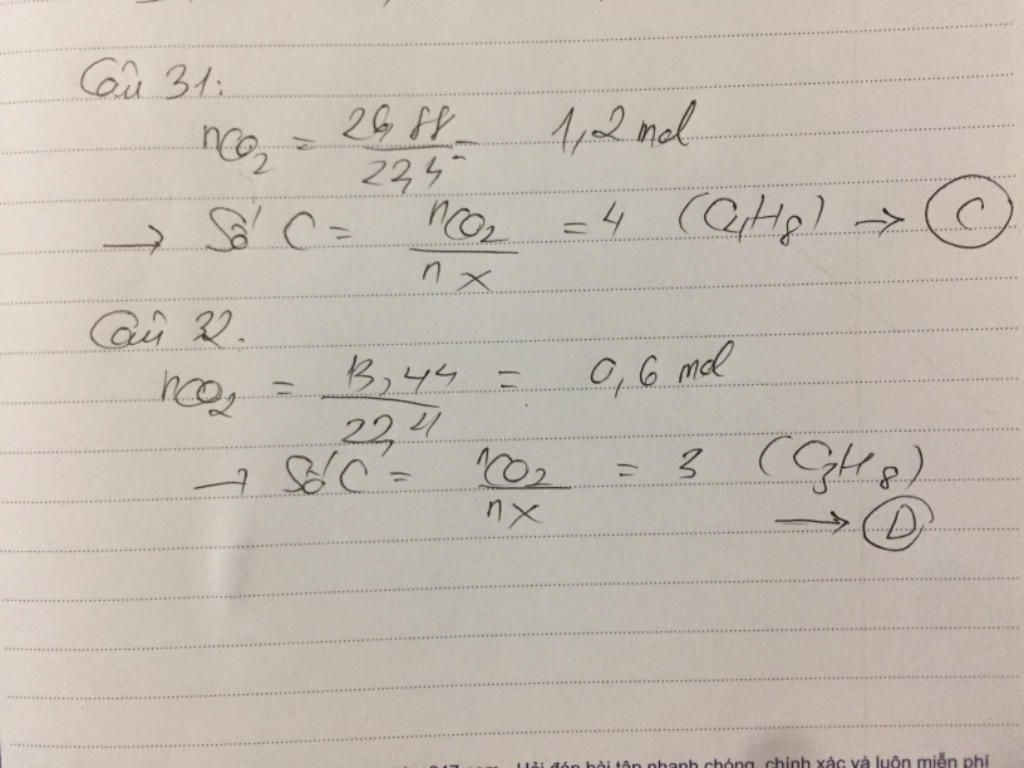 Câu 31:
nCO₂ = 26,88 / 22,4 = 1,2 mol
→ Số C = nCO₂ / nx = 4 (C₄H₈) → C
Câu 32.
nCO₂ = 13,44 / 22,4 = 0,6 mol
→ Số C = nCO₂ / nx = 3 (C₃H₈)
→ D
Hỏi đáp bài tập nhanh chóng, chính xác và luôn miễn phí